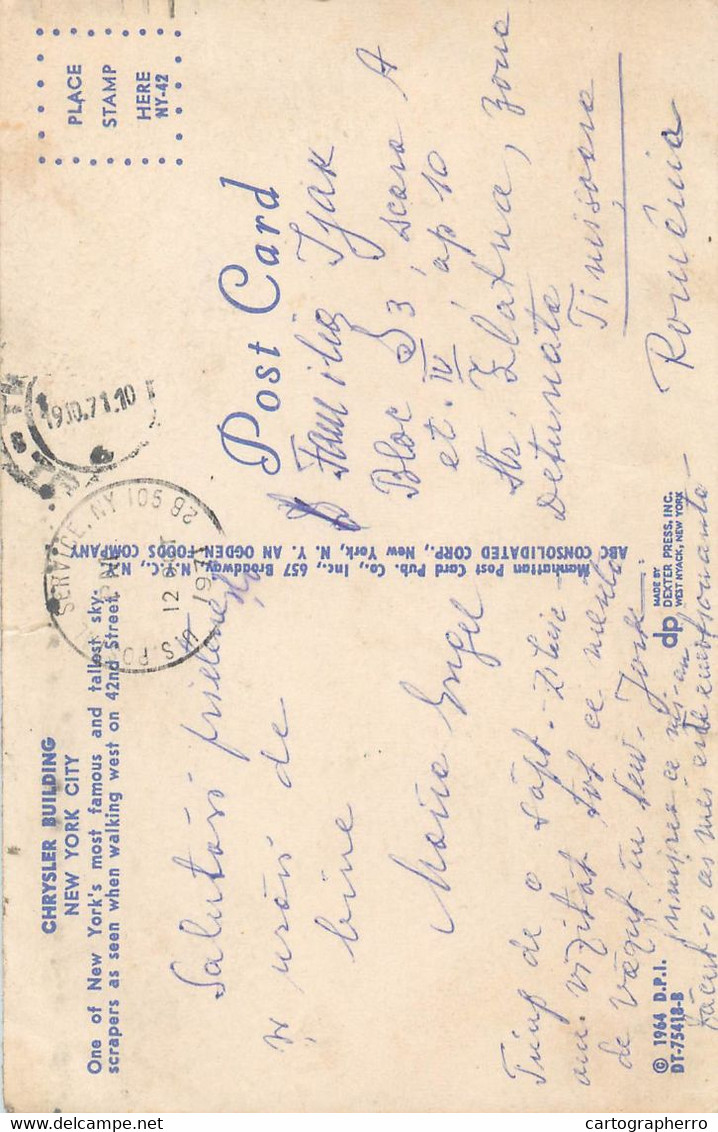 CHRYSLER BUILDING
NEW YORK CITY
One of New York's most famous and tallest sky-
scrapers as seen when walking west on 42nd Street, N.Y.
Salutări prietenești
și urări de
bine
Maria Engel
Timp de o săpt. zilnic
am vizitat tot ce merită
de văzut în New-York
ce mi-au
făcut-o as mei este emoționantă
© 1964 D.P.I.
DT-75418-B
Manhattan Post Card Pub. Co., Inc., 657 Broadway, N.Y.C., N.Y.
ABC CONSOLIDATED CORP., New York, N. Y. AN OGDEN FOODS COMPANY
dp MADE BY
DEXTER PRESS, INC.
WEST NYACK, NEW YORK
PLACE
STAMP
HERE
NY-42
Post Card
U.S. POSTAL SERVICE, NY
12
1971
19.10.71.10
Familia Isak
Bloc S3, scara A
et. IV, ap 10
Str. Zlatna, zona
Detunata
Timișoara
România
cartographerro